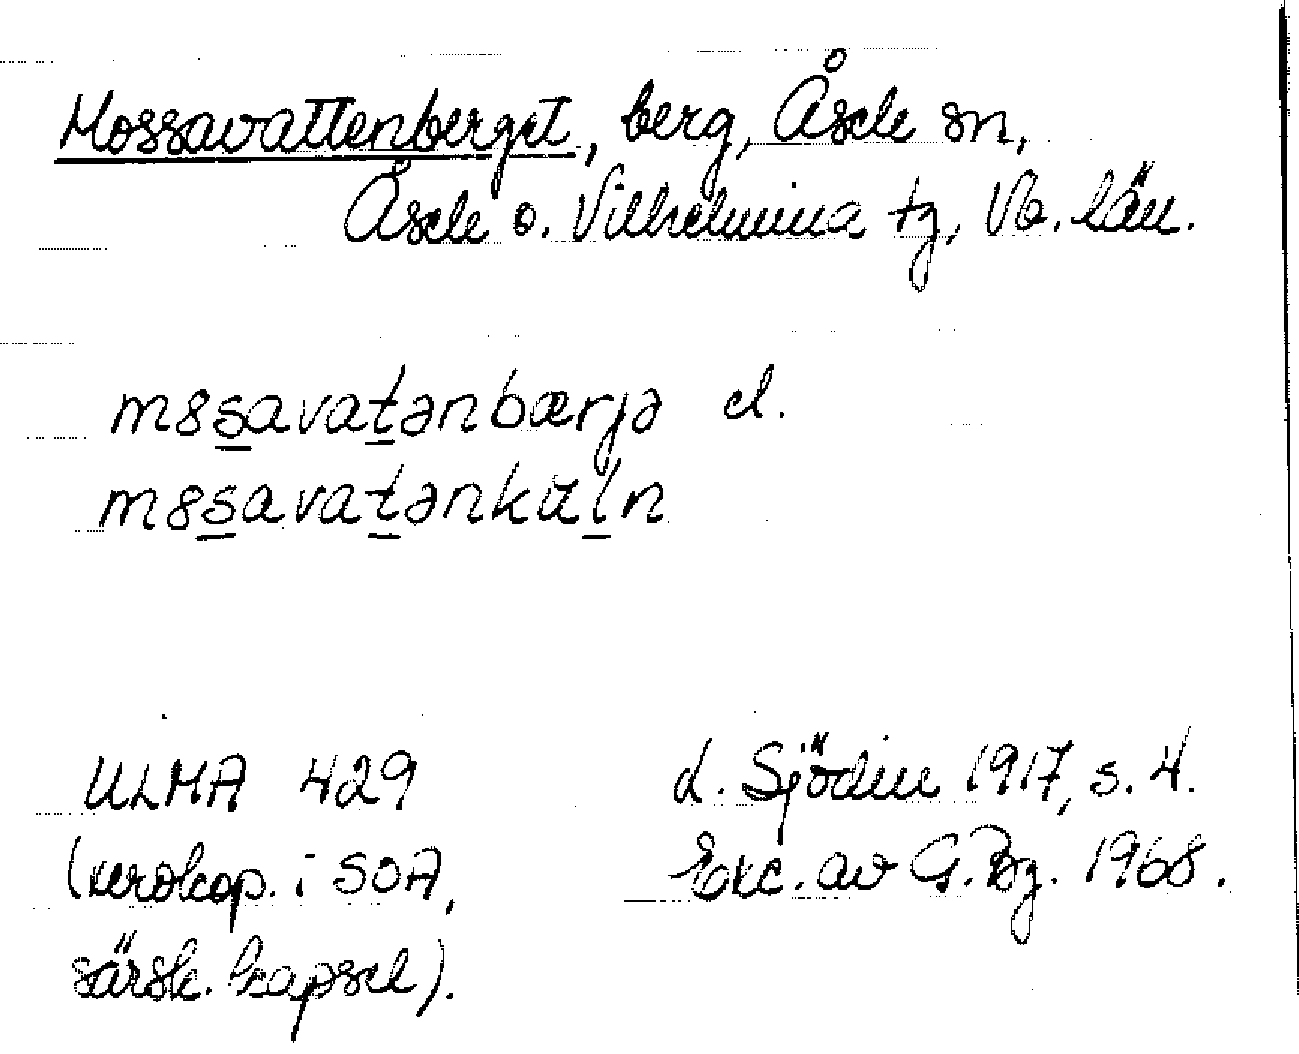 Mossavattenberget, berg, Åsele sn,
Åsele o. Vilhelmina tg, Vb. län.
m8s̲avat̲ənbærjə el.
m8s̲avat̲ənkul̲n
ULMA 429
(xerokop. i SOA,
särsk. kapsel).
d. Sjödin 1917, s. 4.
Exc. av G. Bg. 1968.